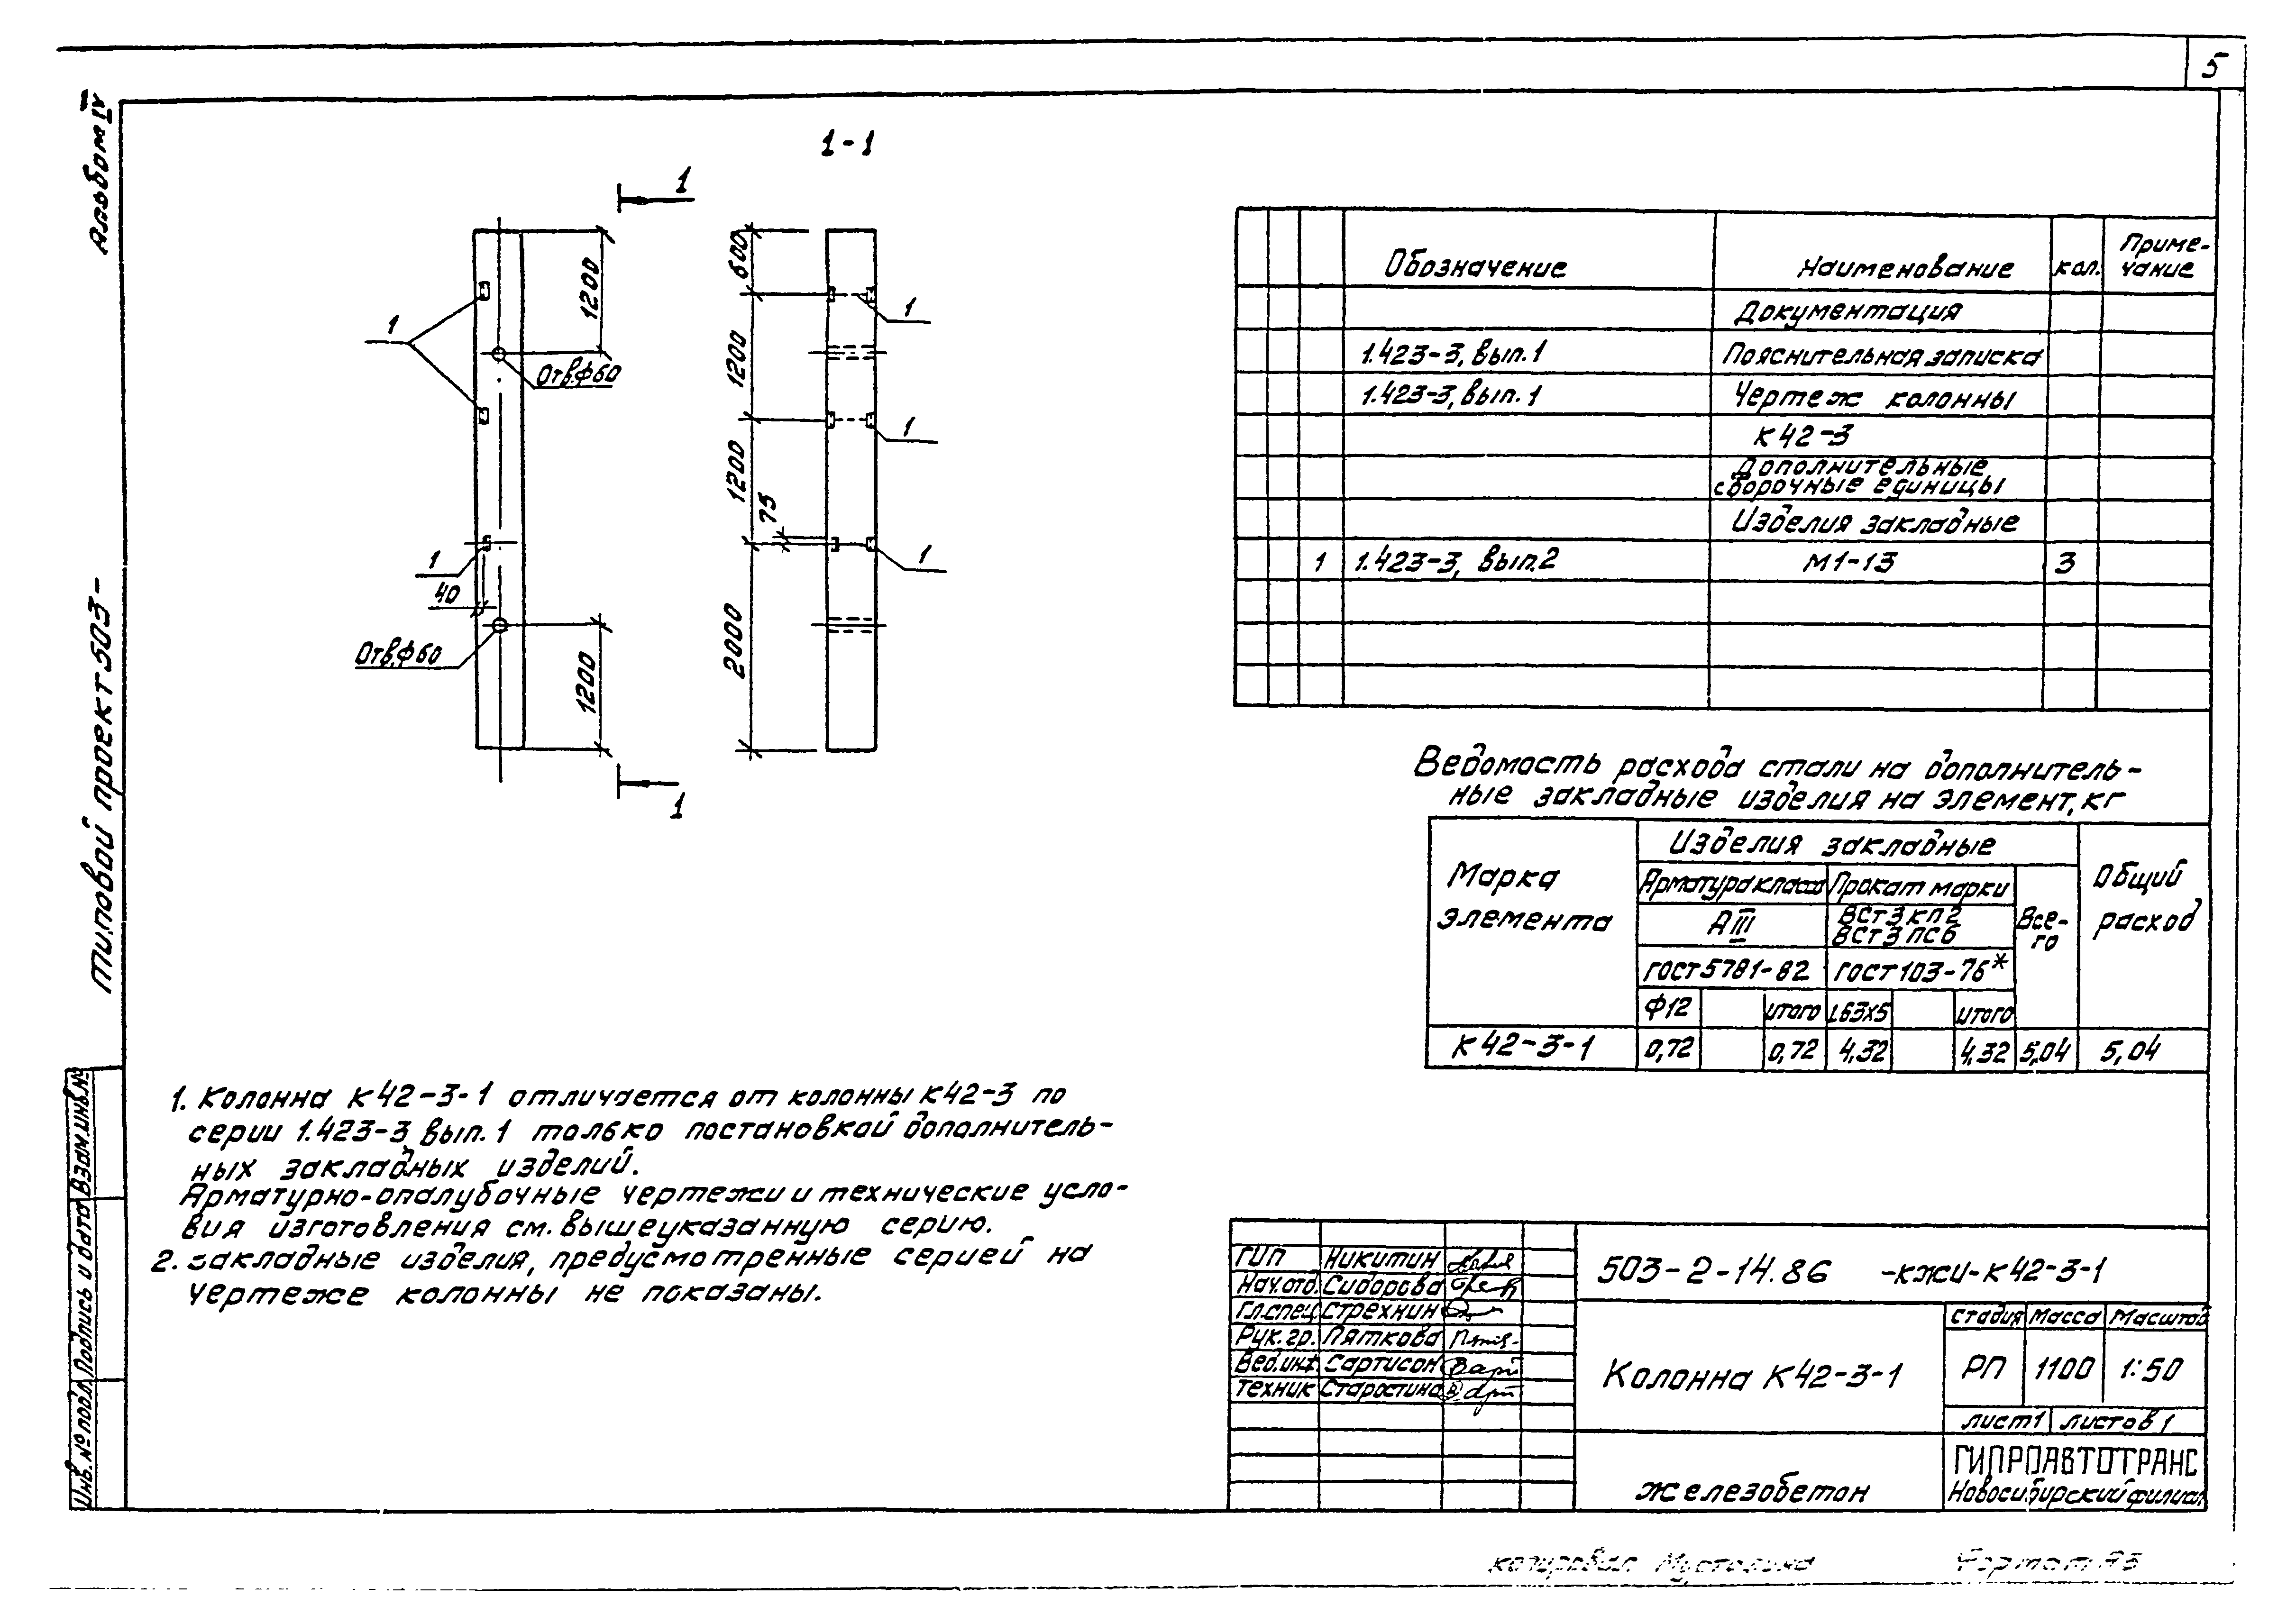 5
Альбом IV
Типовой проект 503-
Взам.инв.№
Подпись и дата
Инв.№ подл.
1-1
1
1200
1
Отв.ф60
1
40
Отв.ф60
1200
1
600
1200
1200
75
2000
1
1
1
Обозначение Наименование кол. Приме-
чание
Документация
1.423-3, вып.1 Пояснительная записка
1.423-3, вып.1 Чертеж колонны
К42-3
Дополнительные
сборочные единицы
Изделия закладные
1 1.423-3, вып.2 М1-13 3
Ведомость расхода стали на дополнитель-
ные закладные изделия на элемент, кг
Марка
элемента
Изделия закладные
Общий
расход
Арматура класса Прокат марки
Все-
го
АIII
ВСт3кп2
ВСт3пс6
ГОСТ 5781-82 ГОСТ 103-76*
Ф12 итого L63х5 итого
К42-3-1 0,72 0,72 4,32 4,32 5,04 5,04
1. Колонна К42-3-1 отличается от колонны К42-3 по
серии 1.423-3, вып.1 только постановкой дополнитель-
ных закладных изделий.
Арматурно-опалубочные чертежи и технические усло-
вия изготовления см. вышеуказанную серию.
2. Закладные изделия, предусмотренные серией на
чертеже колонны не показаны.
ГИП Никитин
Нач.отд. Сидорова
Гл.спец Стрехнин
Рук.гр. Пяткова
Вед.инж Сартисон
Техник Старостина
503-2-14.86 -кжи-К42-3-1
Колонна К42-3-1
Стадия Масса Масштаб
РП 1100 1:50
лист 1 листов 1
железобетон
ГИПРОАВТОТРАНС
Новосибирский филиал
копировал
Формат А3